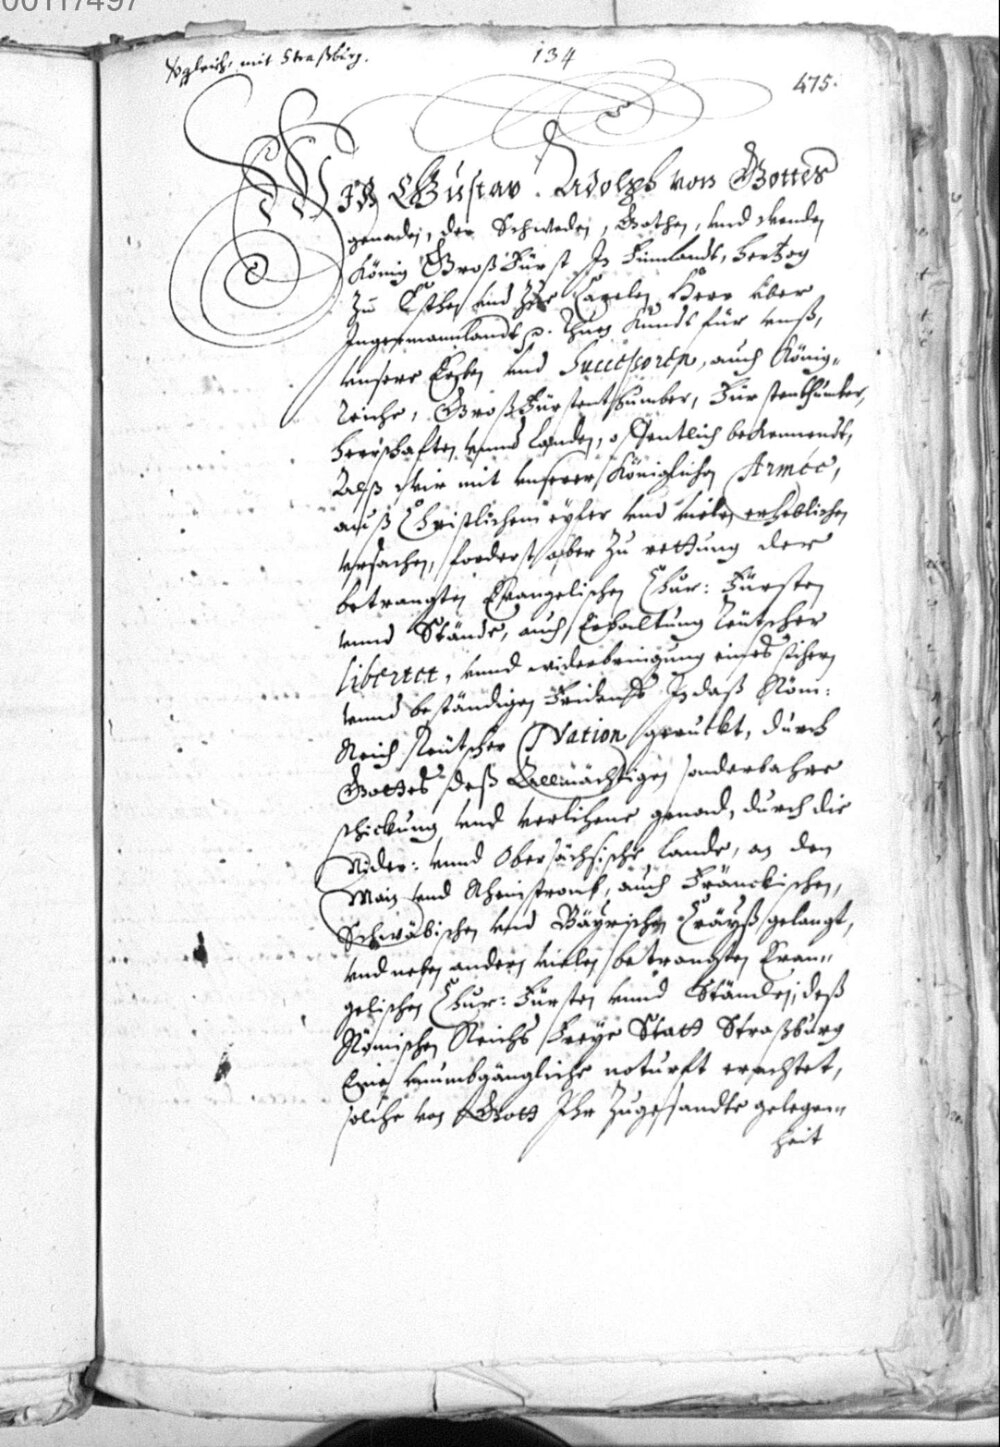 00117497
Vgleich, mit Straßburg.
134
475.
WIR GUstav Adolph von Gottes
genaden, der Schweden, Gothen, vnd Wenden
König Groß Fürst In Finnlandt, Hertzog
Zu Esthen vnd Carelen, Herr über
Ingermannlandt, p. Thuen Kundt für vnß,
vnsere Erben vnd Successoren, auch König-
reiche, Groß Fürstenthumber, Fürstenthümber,
Herrschafften vnnd Landen, offentlich bekennendt,
Alß Wir mit vnserer Königlichen Armée,
auß Christlichem eyfer vnd vielen erheblichen
vrsachen, forderst aber zu rettung der
betrangten Evangelischen Chur: Fürsten
vnnd Stände, auch Erhaltung Teutscher
libertet, vnnd widerbringung eines sichern
vnnd beständigen Fridens In daß Röm:
Reich Teutscher Nation geruckt, durch
Gottes deß Allmächtigen sonderbahre
schickung vnd verlihene genad, durch die
Nider: vnnd Obersächsische Lande, an den
Main vnd Rheinstromb, auch Fränckischen,
Schwäbischen vnd Bäyrischen Cräyß gelangt,
vnd neben andern vielen betrangten Evan-
gelischen Chur: Fürsten vnnd Ständen, deß
Römischen Reichs Freye Statt Straßburg
Eine vnumbgängliche noturfft erachtet,
solche von Gott Ihr zugesandte gelegen-
heit